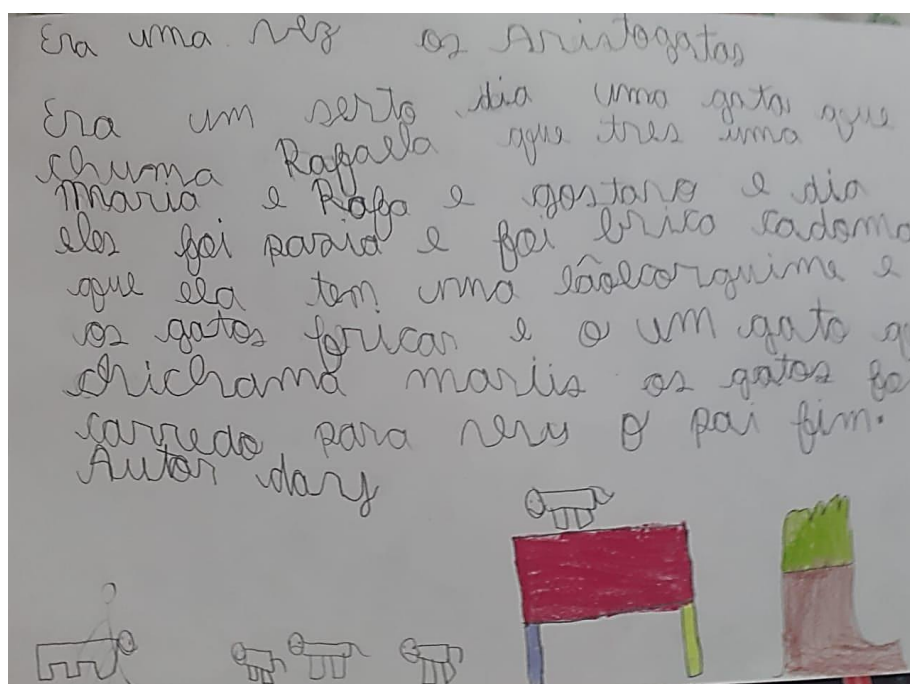 Era uma vez os Aristogatas
Era um serto dia uma gata que
chuma Raffaela que tres uma
Maria e Rafa e gostaro e dia
eles foi pasia e foi brico
que ela tem uma e
os gatos foricar e o um gato
chichama mariis os gatos
carredo para o pai fim.
Autor dary